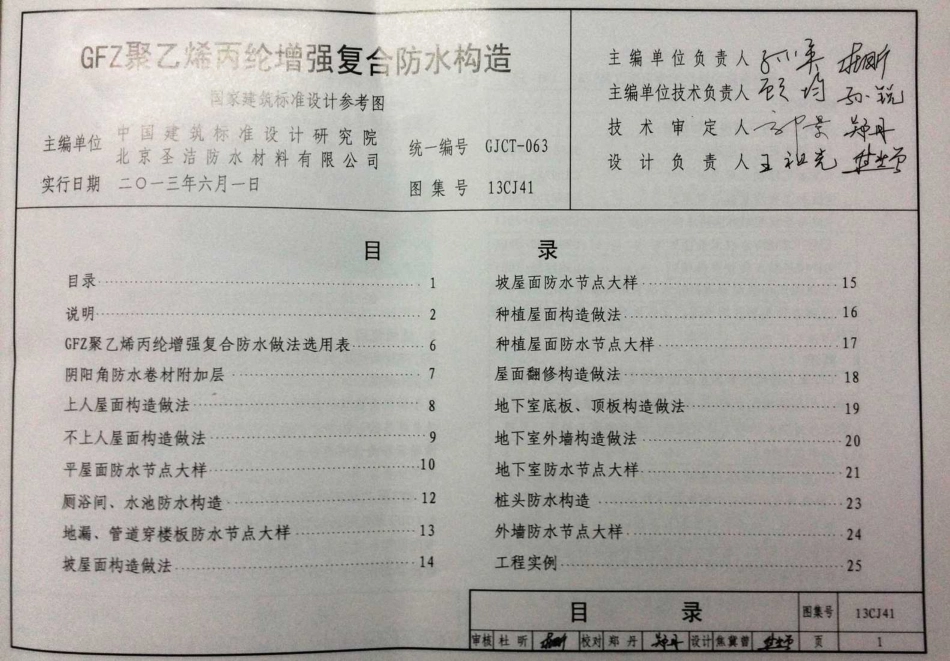 GFZ聚乙烯丙纶增强复合防水构造
国家建筑标准设计参考图
主编单位 中国建筑标准设计研究院
北京圣洁防水材料有限公司
统一编号 GJCT-063
实行日期 二〇一三年六月一日
图集号 13CJ41
主编单位负责人
主编单位技术负责人 顾均
技术审定人
设计负责人 王祖光
目 录
目录 1
说明 2
GFZ聚乙烯丙纶增强复合防水做法选用表 6
阴阳角防水卷材附加层 7
上人屋面构造做法 8
不上人屋面构造做法 9
平屋面防水节点大样 10
厕浴间、水池防水构造 12
地漏、管道穿楼板防水节点大样 13
坡屋面构造做法 14
坡屋面防水节点大样 15
种植屋面构造做法 16
种植屋面防水节点大样 17
屋面翻修构造做法 18
地下室底板、顶板构造做法 19
地下室外墙构造做法 20
地下室防水节点大样 21
桩头防水构造 23
外墙防水节点大样 24
工程实例 25
目 录 图集号 13CJ41
审核 杜昕 校对 郑丹 设计 焦冀曾 页 1